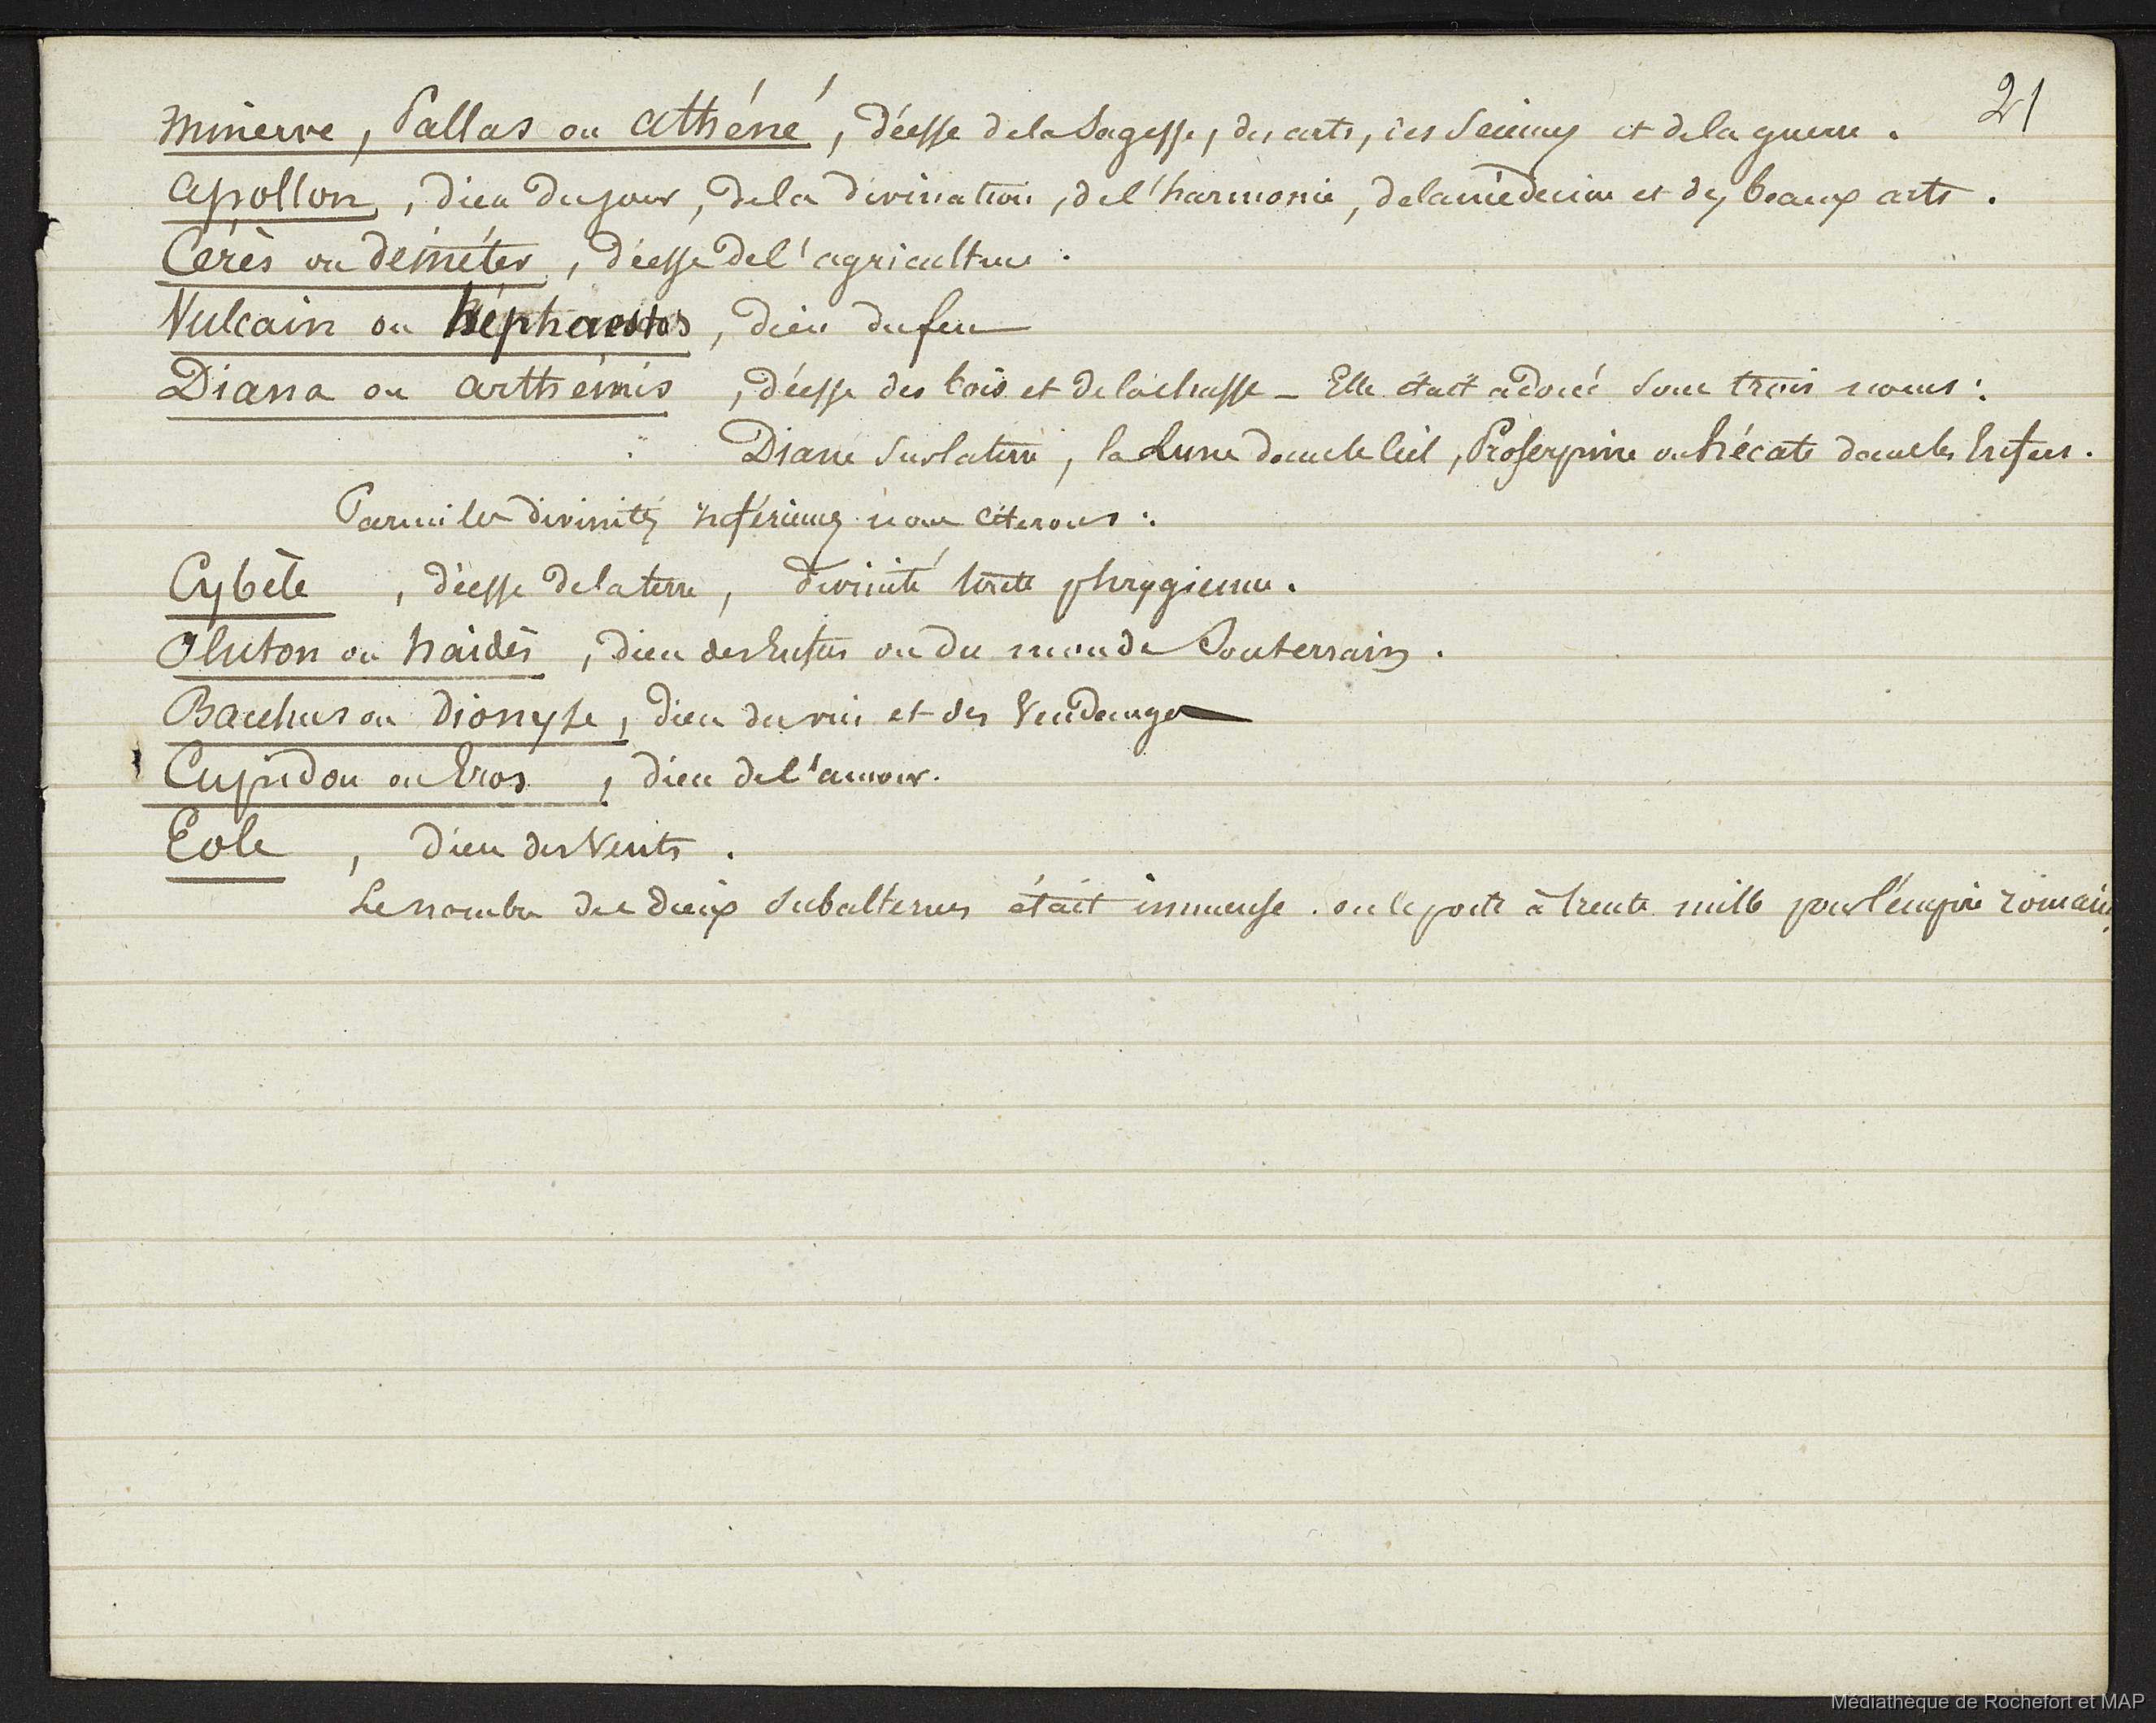 21
Minerve, Pallas ou Athéné, déesse de la Sagesse, des arts, des Sciences et de la guerre.
Apollon, dieu du jour, de la divination, de l'harmonie, de la médecine et des beaux arts.
Cérès ou déméter, déesse de l'agriculture.
Vulcain ou héphaestos, dieu du feu
Diana ou arthémis, déesse des bois et de la chasse - Elle était adorée sous trois noms :
Diane sur la terre, la Lune dans le Ciel, Proserpine ou hécate dans les Enfers.
Parmi les divinités inférieures nous citerons :
Cybèle, déesse de la terre, divinité toute phrygienne.
Pluton ou haidès, dieu des Enfers ou du monde Souterrain.
Bacchus ou Dionyse, dieu du vin et des Vendanges
Cupidon ou Eros, dieu de l'amour.
Eole, dieu des Vents.
Le nombre des dieux subalternes était immense. on le porte à trente mille pour l'empire romain,
Médiathèque de Rochefort et MAP